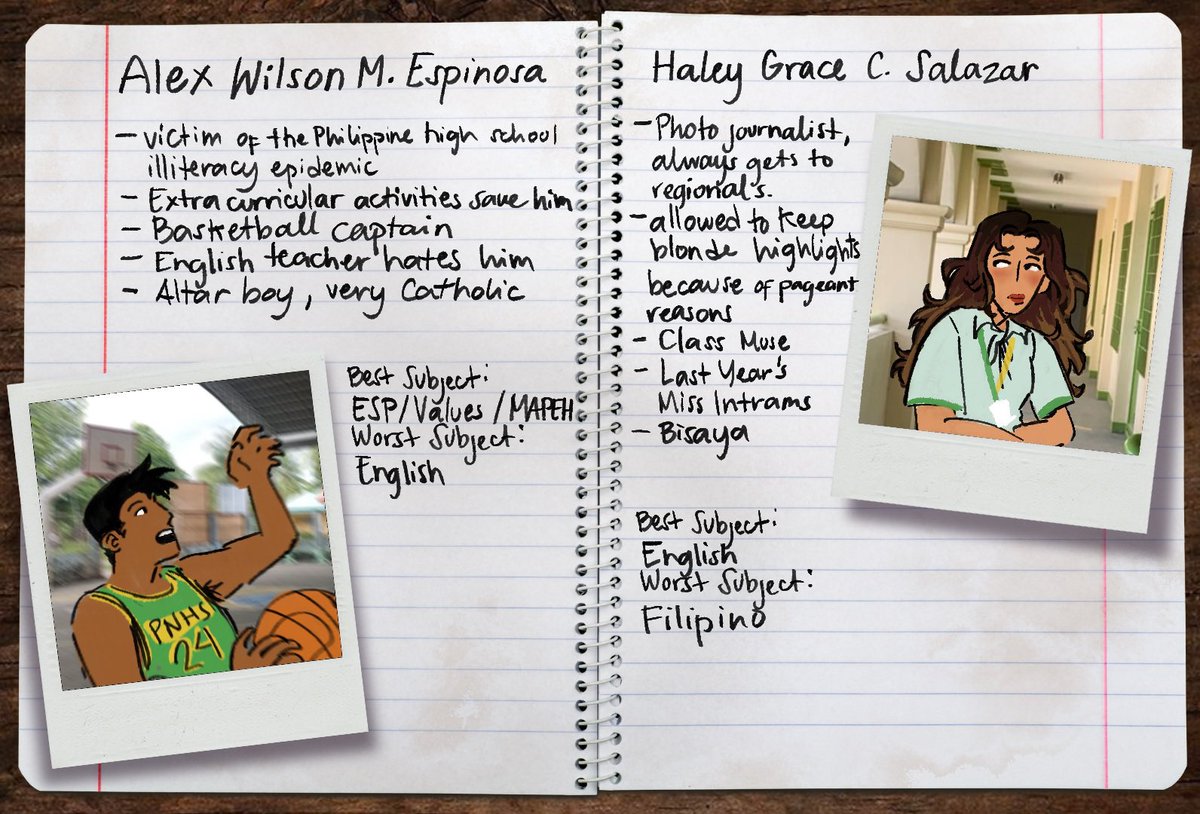 Alex Wilson M. Espinosa
- victim of the Philippine high school
illiteracy epidemic
- Extra curricular activities save him
- Basketball captain
- English teacher hates him
- Altar boy, very Catholic
Best Subject:
ESP/Values/MAPEH
Worst Subject:
English
PNHS
24
Haley Grace C. Salazar
- Photo journalist,
always gets to
regional's.
- allowed to keep
blonde highlights
because of pageant
reasons
- Class Muse
- Last Year's
Miss Intrams
- Bisaya
Best Subject:
English
Worst Subject:
Filipino